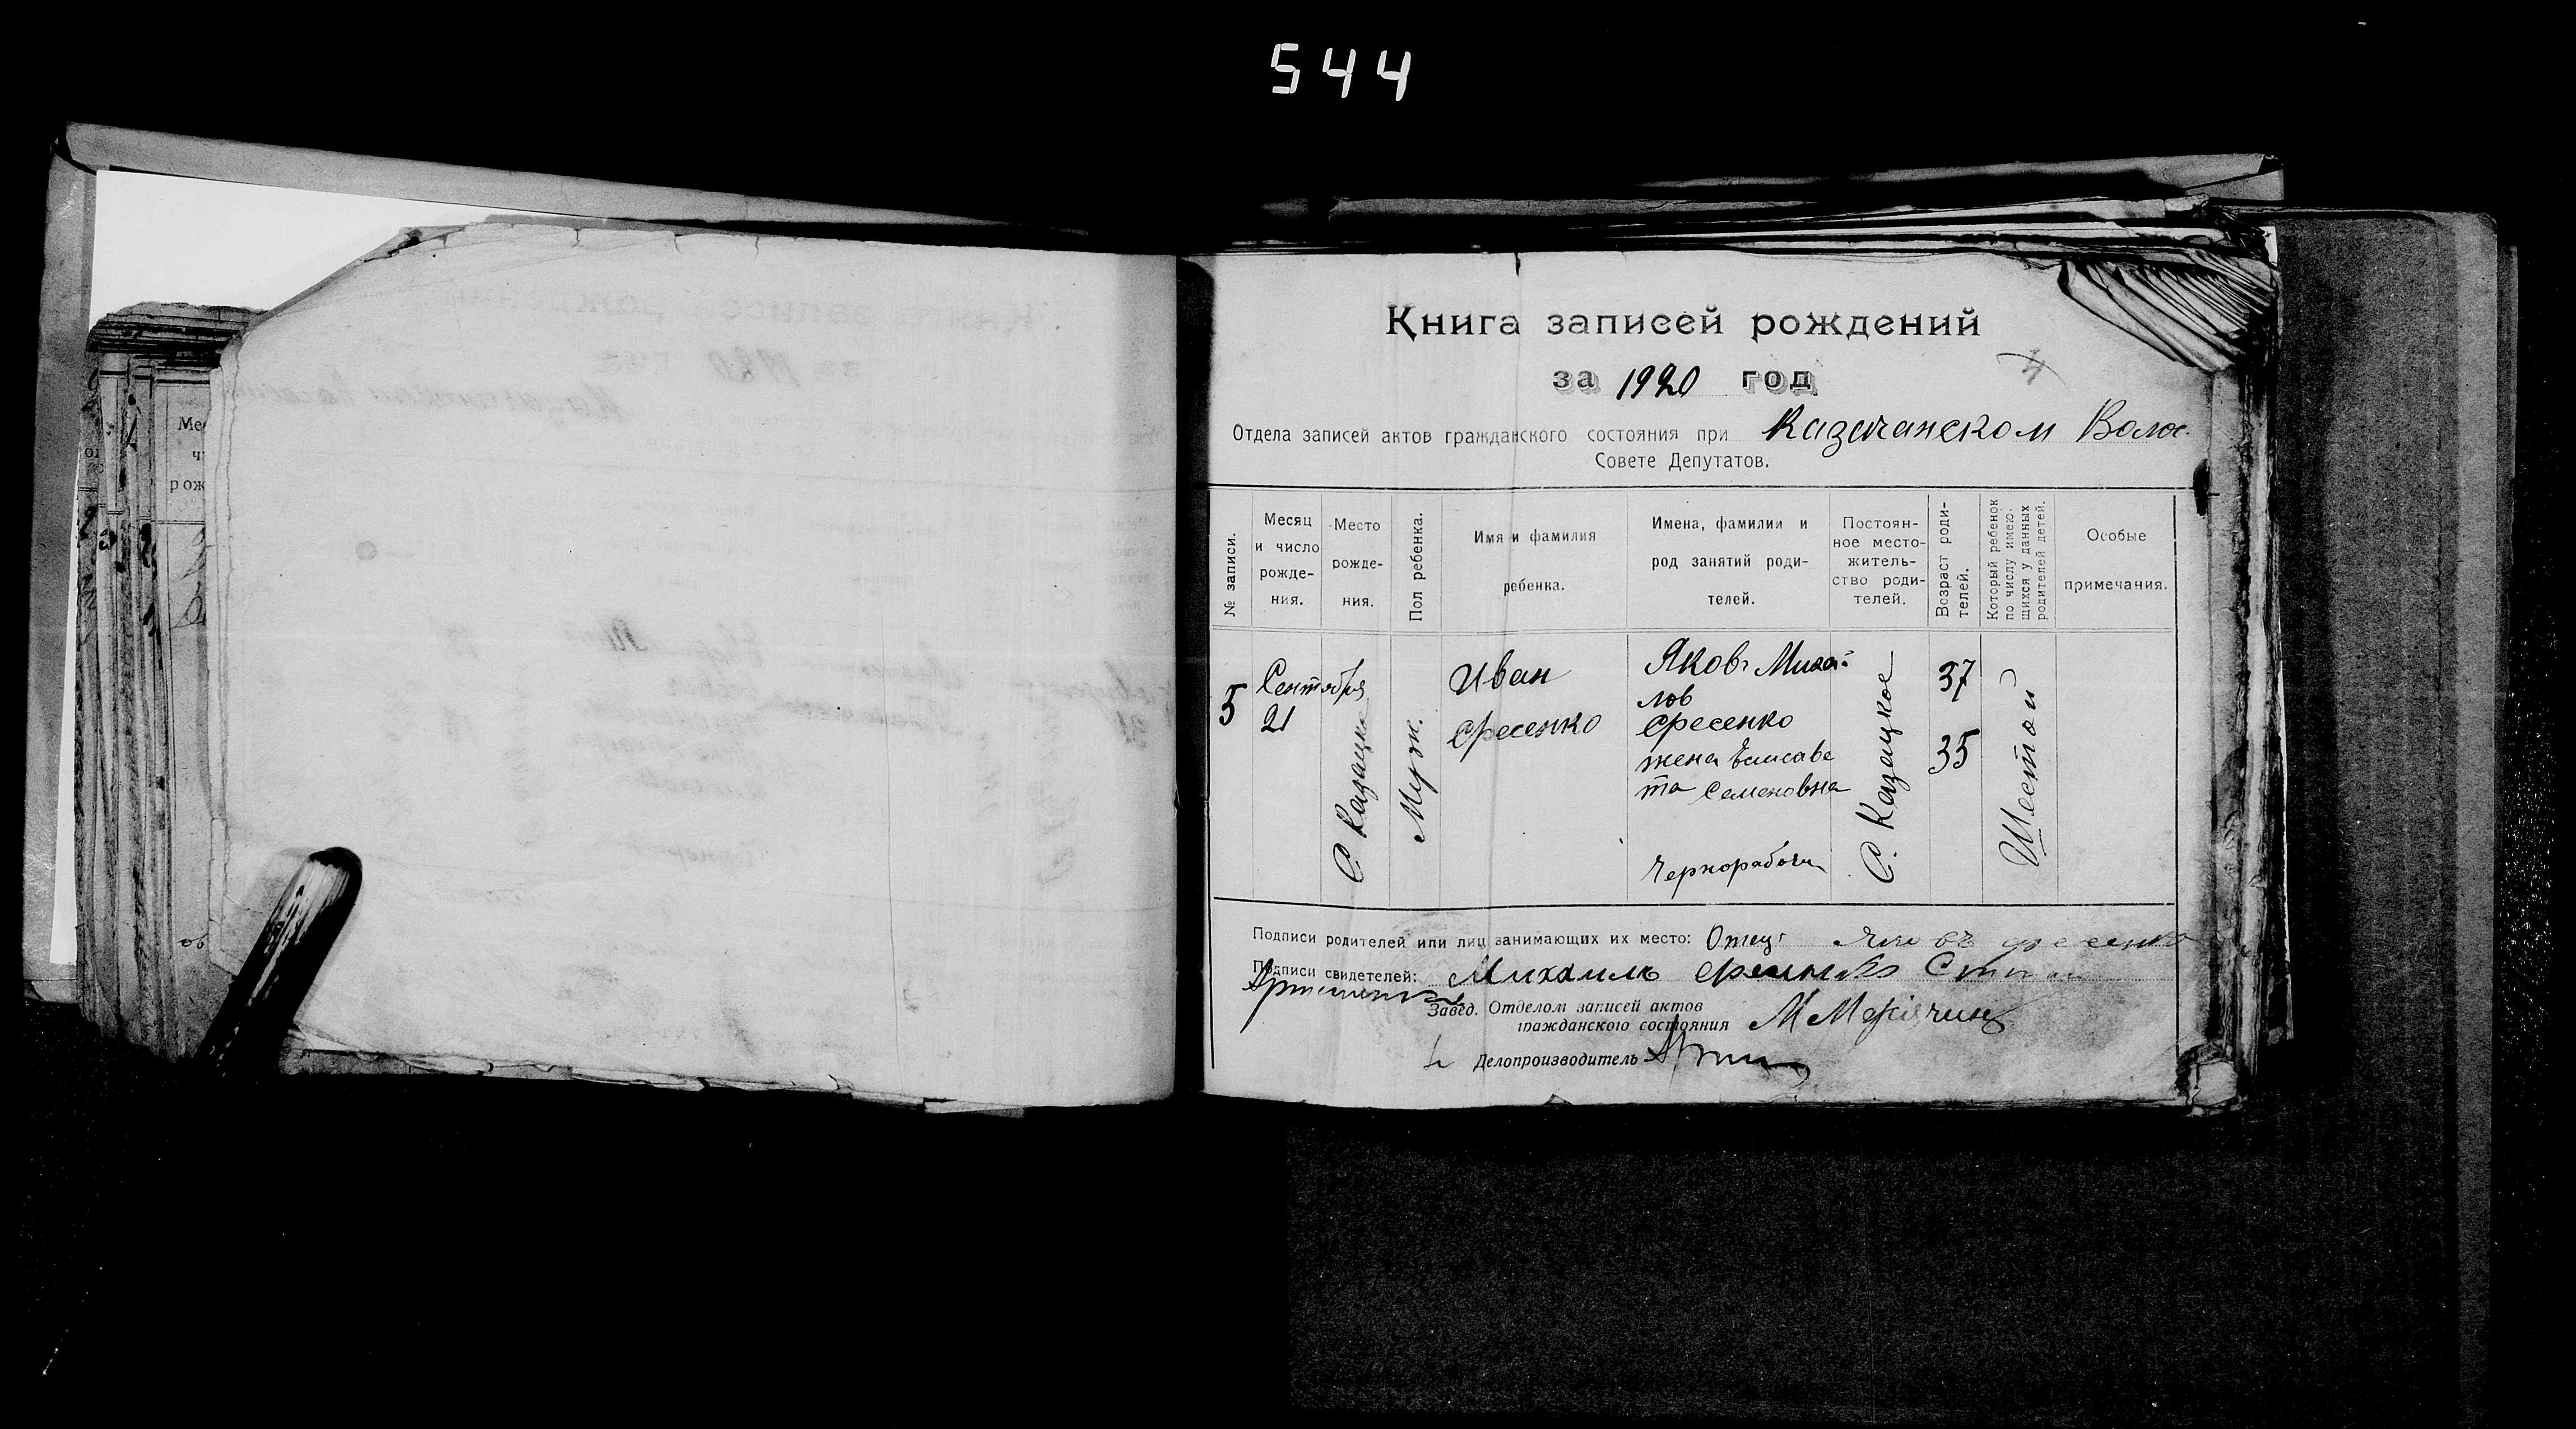 544
Ме
ч
рож
ов
Книга записей рождений
за 1920 год
Отдела записей актов гражданского состояния при Казачанском Волос.
Совете Депутатов.
№ записи.
Месяц
и число
рожде-
ния.
Место
рожде-
ния.
Пол ребенка.
Имя и фамилия
ребенка.
Имена, фамилии и
род занятий роди-
телей.
Постоян-
ное место-
житель-
ство роди-
телей.
Возраст роди-
телей.
Который ребенок
по числу имею-
щихся у данных
родителей детей.
Особые
примечания.
5
Сентября
21
С. Казацкое
Муж.
Иван
Фесенко
Яковъ Михай
лов
Фесенко
жена Елисаве
та Семеновна
Чернорабочи
С. Казацкое
37
35
Шестой
Подписи родителей или лиц занимающих их место: Отец Яковъ Фесенко
Подписи свидетелей: Михаилъ Фесенко
Завед. Отделом записей актов
гражданского состояния
Делопроизводитель